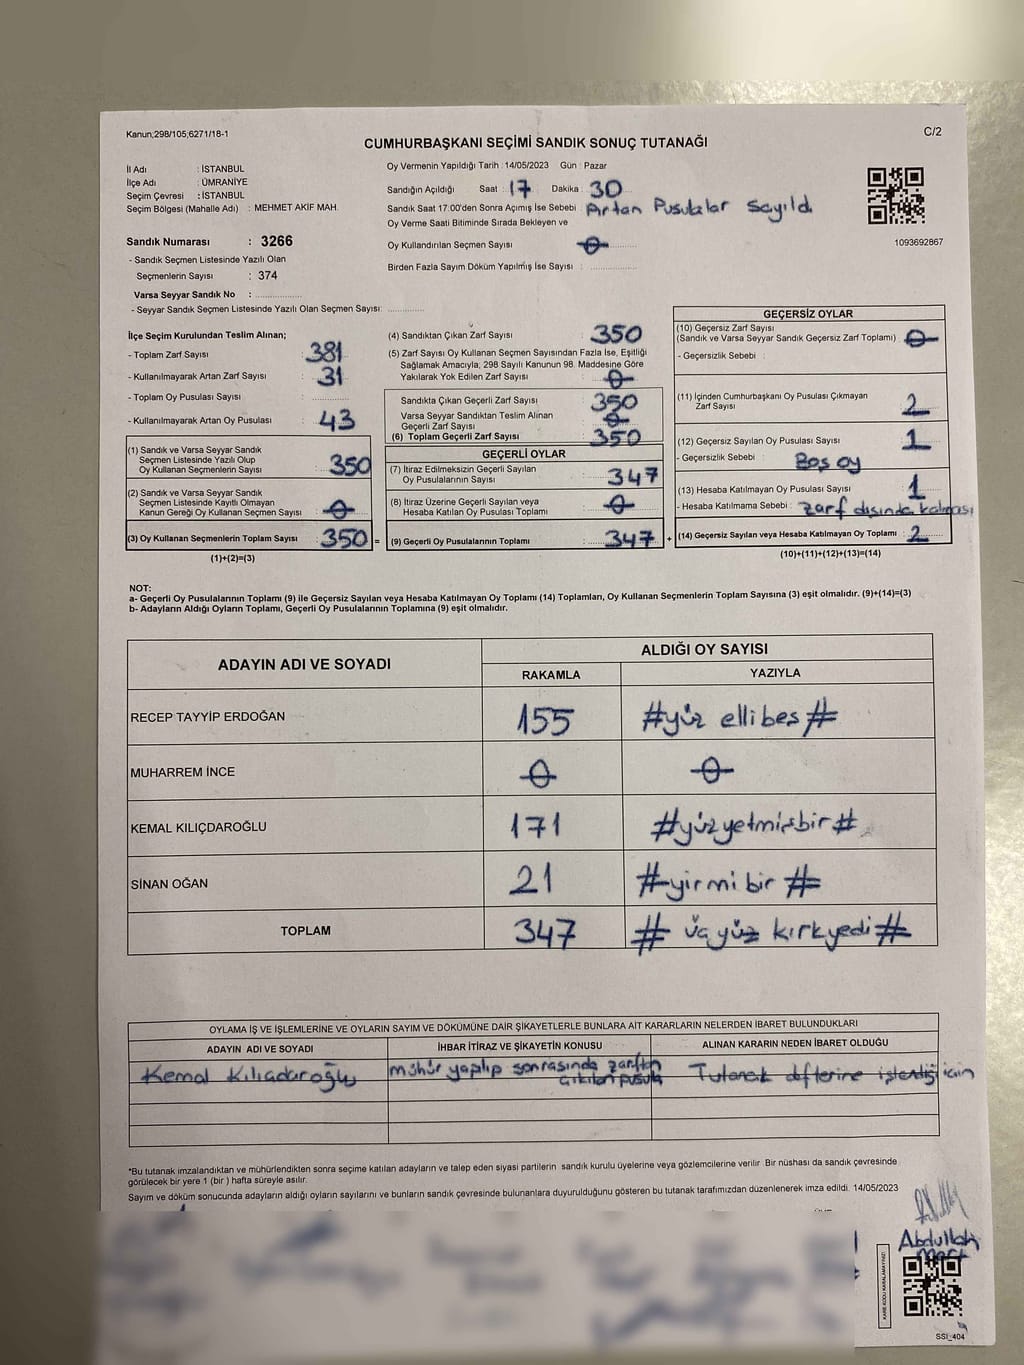 Kanun;298/105;6271/18-1
C/2
CUMHURBAŞKANI SEÇİMİ SANDIK SONUÇ TUTANAĞI
İl Adı : İSTANBUL
İlçe Adı : ÜMRANİYE
Seçim Çevresi : İSTANBUL
Seçim Bölgesi (Mahalle Adı) : MEHMET AKİF MAH.
Sandık Numarası : 3266
- Sandık Seçmen Listesinde Yazılı Olan
Seçmenlerin Sayısı : 374
Varsa Seyyar Sandık No :
- Seyyar Sandık Seçmen Listesinde Yazılı Olan Seçmen Sayısı:
Oy Vermenin Yapıldığı Tarih : 14/05/2023 Gün : Pazar
Sandığın Açıldığı Saat : 17 Dakika : 30
Sandık Saat 17:00'den Sonra Açımış İse Sebebi : Artan Pusulalar Sayıldı
Oy Verme Saati Bitiminde Sırada Bekleyen ve
Oy Kullandırılan Seçmen Sayısı : 0
Birden Fazla Sayım Döküm Yapılmış İse Sayısı :
1093692867
İlçe Seçim Kurulundan Teslim Alınan;
- Toplam Zarf Sayısı : 381
- Kullanılmayarak Artan Zarf Sayısı : 31
- Toplam Oy Pusulası Sayısı :
- Kullanılmayarak Artan Oy Pusulası : 43
(1) Sandık ve Varsa Seyyar Sandık
Seçmen Listesinde Yazılı Olup
Oy Kullanan Seçmenlerin Sayısı : 350
(2) Sandık ve Varsa Seyyar Sandık
Seçmen Listesinde Kayıtlı Olmayan
Kanun Gereği Oy Kullanan Seçmen Sayısı : 0
(3) Oy Kullanan Seçmenlerin Toplam Sayısı : 350 =
(1)+(2)=(3)
(4) Sandıktan Çıkan Zarf Sayısı : 350
(5) Zarf Sayısı Oy Kullanan Seçmen Sayısından Fazla İse, Eşitliği
Sağlamak Amacıyla; 298 Sayılı Kanunun 98. Maddesine Göre
Yakılarak Yok Edilen Zarf Sayısı : 0
Sandıkta Çıkan Geçerli Zarf Sayısı : 350
Varsa Seyyar Sandıktan Teslim Alınan
Geçerli Zarf Sayısı : 0
(6) Toplam Geçerli Zarf Sayısı : 350
GEÇERLİ OYLAR
(7) İtiraz Edilmeksizin Geçerli Sayılan
Oy Pusulalarının Sayısı : 347
(8) İtiraz Üzerine Geçerli Sayılan veya
Hesaba Katılan Oy Pusulası Toplamı : 0
(9) Geçerli Oy Pusulalarının Toplamı : 347 +
GEÇERSİZ OYLAR
(10) Geçersiz Zarf Sayısı
(Sandık ve Varsa Seyyar Sandık Geçersiz Zarf Toplamı) : 0
- Geçersizlik Sebebi :
(11) İçinden Cumhurbaşkanı Oy Pusulası Çıkmayan
Zarf Sayısı : 2
(12) Geçersiz Sayılan Oy Pusulası Sayısı : 1
- Geçersizlik Sebebi : Boş oy
(13) Hesaba Katılmayan Oy Pusulası Sayısı : 1
- Hesaba Katılmama Sebebi : zarf dışında kalması
(14) Geçersiz Sayılan veya Hesaba Katılmayan Oy Toplamı : 2
(10)+(11)+(12)+(13)=(14)
NOT:
a- Geçerli Oy Pusulalarının Toplamı (9) ile Geçersiz Sayılan veya Hesaba Katılmayan Oy Toplamı (14) Toplamları, Oy Kullanan Seçmenlerin Toplam Sayısına (3) eşit olmalıdır. (9)+(14)=(3)
b- Adayların Aldığı Oyların Toplamı, Geçerli Oy Pusulalarının Toplamına (9) eşit olmalıdır.
ADAYIN ADI VE SOYADI
ALDIĞI OY SAYISI
RAKAMLA YAZIYLA
RECEP TAYYİP ERDOĞAN 155 #yüz ellibeş#
MUHARREM İNCE 0 0
KEMAL KILIÇDAROĞLU 171 #yüzyetmişbir#
SİNAN OĞAN 21 #yirmi bir#
TOPLAM 347 # üçyüz kırkyedi#
OYLAMA İŞ VE İŞLEMLERİNE VE OYLARIN SAYIM VE DÖKÜMÜNE DAİR ŞİKAYETLERLE BUNLARA AİT KARARLARIN NELERDEN İBARET BULUNDUKLARI
ADAYIN ADI VE SOYADI İHBAR İTİRAZ VE ŞİKAYETİN KONUSU ALINAN KARARIN NEDEN İBARET OLDUĞU
Kemal Kılıçdaroğlu mühür yapılıp sonrasında zarftan Tutanak defterine işlendiği için
çıkılan pusula
*Bu tutanak imzalandıktan ve mühürlendikten sonra seçime katılan adayların ve talep eden siyasi partilerin sandık kurulu üyelerine veya gözlemcilerine verilir. Bir nüshası da sandık çevresinde
görülecek bir yere 1 (bir ) hafta süreyle asılır.
Sayım ve döküm sonucunda adayların aldığı oyların sayılarını ve bunların sandık çevresinde bulunanlara duyurulduğunu gösteren bu tutanak tarafımızdan düzenlenerek imza edildi. 14/05/2023
Abdullah
KARE KODU KARALAMAYINIZ!
SSİ_404